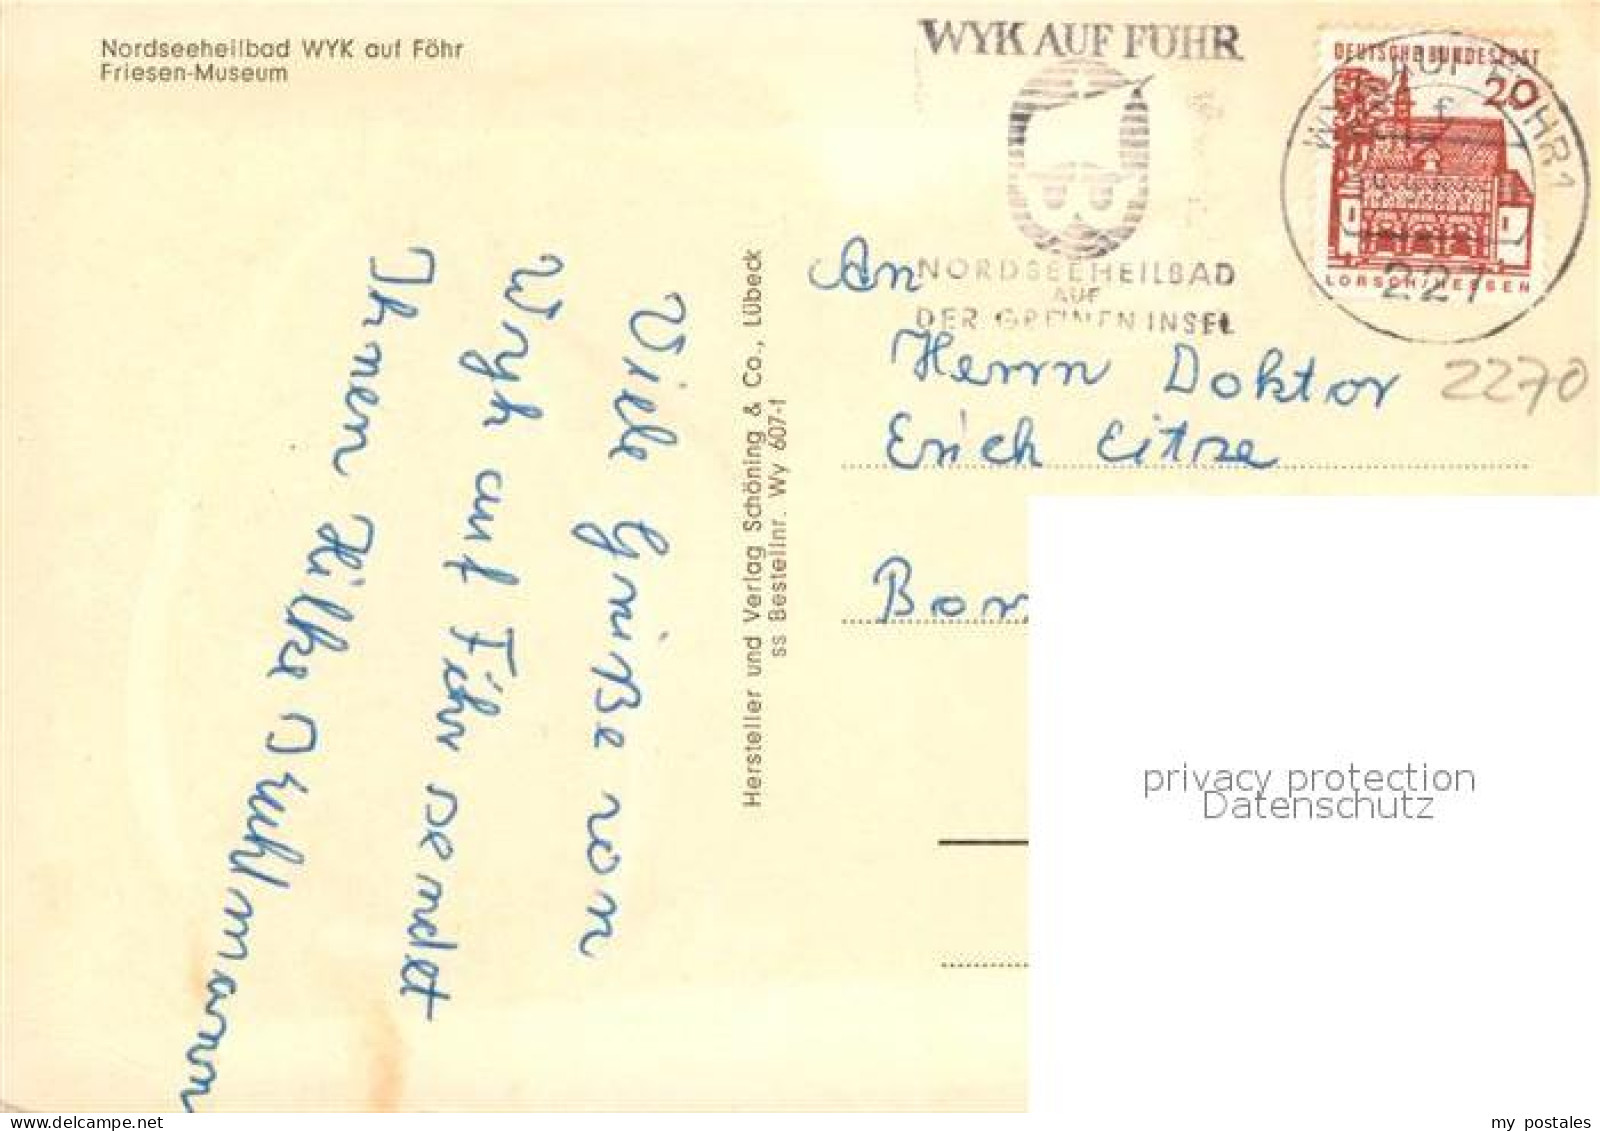 Nordseeheilbad WYK auf Föhr
Friesen-Museum
WYK AUF FÖHR
NORDSEEHEILBAD
AUF
DER GRÜNEN INSEL
DEUTSCHE BUNDESPOST
20
LORSCH/HESSEN
WYK AUF FÖHR 1
f
227
2270
An
Herrn Doktor
Erich Eitze
Viele Grüße von
Wyk auf Föhr sendet
Ihnen Hilke
Hersteller und Verlag Schöning & Co., Lübeck
ss Bestellnr. Wy 607-1
privacy protection
Datenschutz
my postales
www.delcampe.net